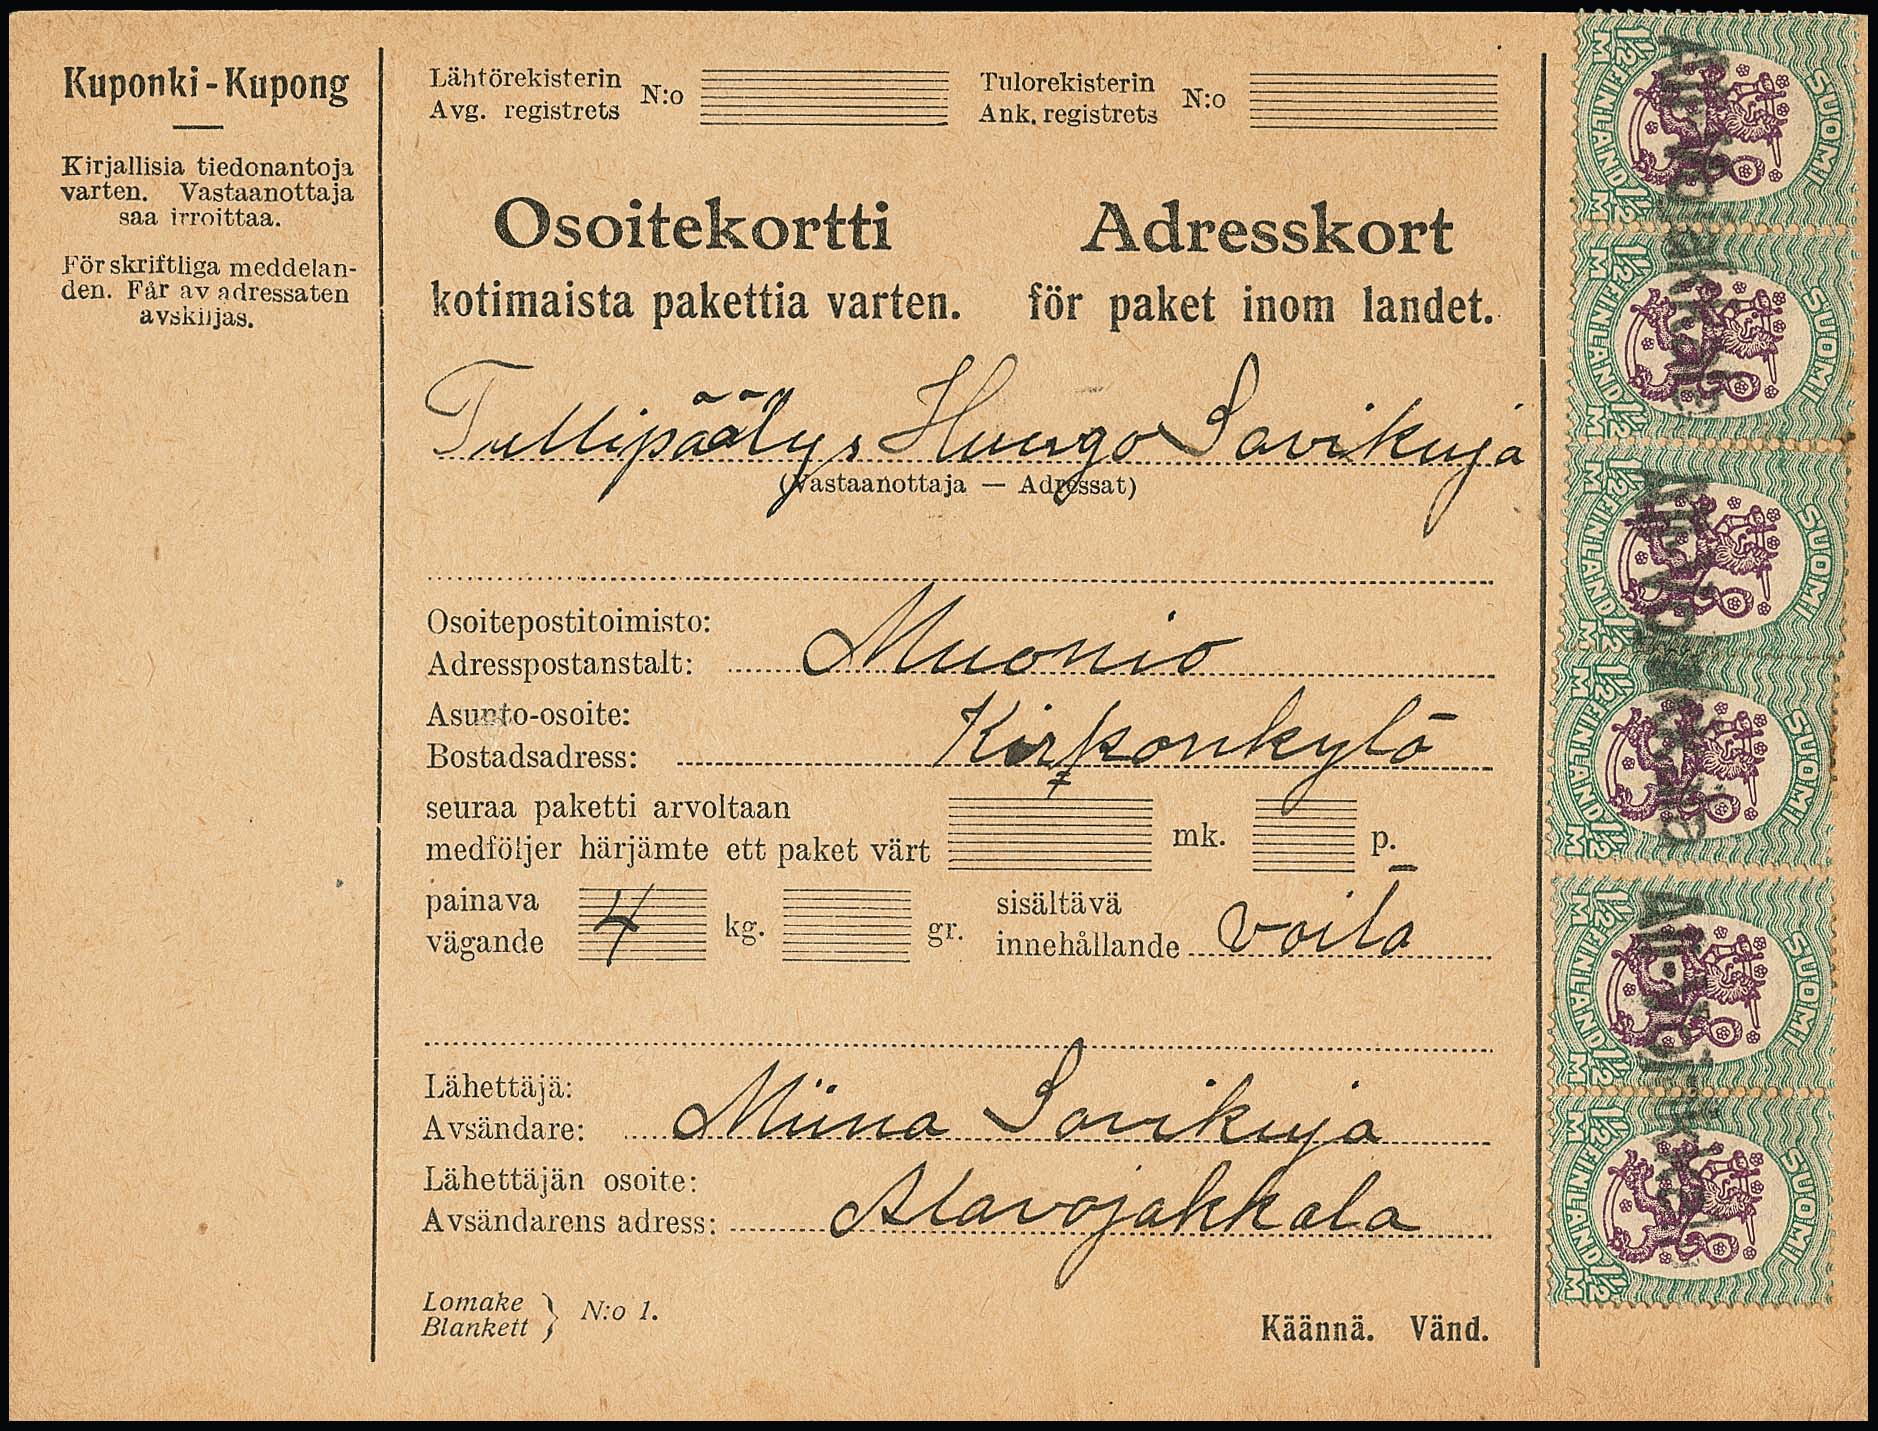 Kuponki - Kupong
Kirjallisia tiedonantoja
varten. Vastaanottaja
saa irroittaa.
För skriftliga meddelan-
den. Får av adressaten
avskiljas.
Lähtörekisterin
Avg. registrets N:o
Tulorekisterin
Ank. registrets N:o
Osoitekortti
kotimaista pakettia varten.
Adresskort
för paket inom landet.
Tullipäälys Huugo Savikuja
(Vastaanottaja — Adressat)
Osoitepostitoimisto:
Adresspostanstalt: Muonio
Asunto-osoite:
Bostadsadress: Kirkonkylä
seuraa paketti arvoltaan
medföljer härjämte ett paket värt mk. p.
painava
vägande 4 kg. gr.
sisältävä
innehållande voitä
Lähettäjä:
Avsändare: Miina Savikuja
Lähettäjän osoite:
Avsändarens adress: Alavojakkala
Lomake
Blankett } N:o 1.
Käännä. Vänd.
SUOMI
1½ FINLAND 1½
M M
SUOMI
1½ FINLAND 1½
M M
SUOMI
1½ FINLAND 1½
M M
SUOMI
1½ FINLAND 1½
M M
SUOMI
1½ FINLAND 1½
M M
SUOMI
1½ FINLAND 1½
M M